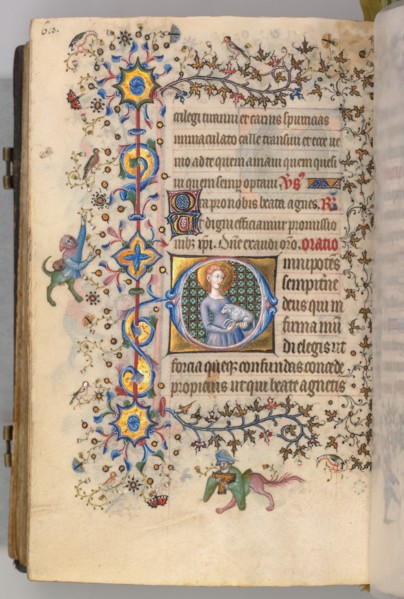 cilegi tiranni et carnis spurcias
immaculato calle transivi et ecce ve
nio ad te quem amavi quem quesi
vi quem semp optavi. Vs
Ora pro nobis beate agnes. R
Ut digni efficiamur promissio
nibz xpi. Dne exaudi oro. Oratio
Omnipotens
sempiterne
deus qui in
firma mu
di elegis ut
forcia queqz confundas concede
propicius ut qui beate agnetis